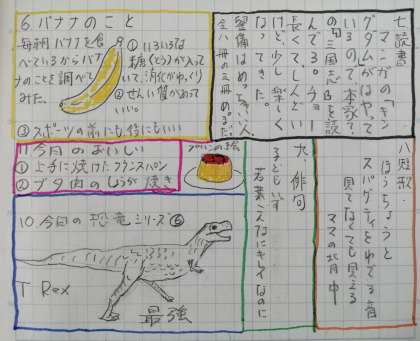 6. バナナのこと
毎朝バナナを食
べているからバナ
ナのことを調べて
みた。
① いろいろな
糖(とう)が入って
いて、消化がゆっくり
② せんい質があって
いい。
③ スポーツの前にも後にもいい
七. 読書
マンガの「キン
グダム」がはやって
いるので、本家で
の「三国志」を読
んでる。チョー
長くてしんどい
けど、少し楽しく
なってきた。
全八冊の三冊めまで。
八. 短歌.
ほうちょうと
スパゲティをゆでる音
見てなくても見える
ママの背中
九. 俳句
子どもいす
若葉
なのに
11 今月のおいしい
① 上手に焼けたフランスパン
② ブタ肉のしょうが焼き
プリンの絵
10. 今回の恐竜シリーズ⑥
T Rex
最強